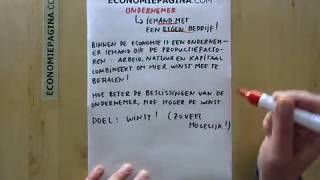 ECONOMIEPAGINA.COM
ONDERNEMER
↳ IEMAND MET
EEN EIGEN BEDRIJF!
BINNEN DE ECONOMIE IS EEN ONDERNEM-
ER IEMAND DIE DE PRODUCTIEFACTO-
REN: ARBEID, NATUUR EN KAPITAAL
COMBINEERT OM HIER WINST MEE TE
BEHALEN!
HOE BETER DE BESLISSINGEN VAN DE
ONDERNEMER, HOE HOGER DE WINST
DOEL: WINST! (ZOVEEL
MOGELIJK!)
ECONOMIEPAGINA.COM